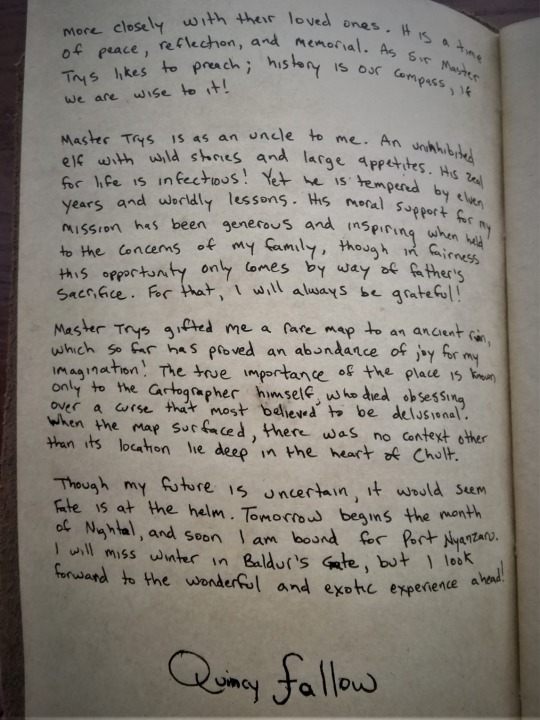 more closely with their loved ones. It is a time
of peace, reflection, and memorial. As Sir Master
Trys likes to preach; history is our compass, if
we are wise to it!
Master Trys is as an uncle to me. An uninhibited
elf with wild stories and large appetites. His zeal
for life is infectious! Yet he is tempered by elven
years and worldly lessons. His moral support for my
mission has been generous and inspiring when held
to the concerns of my family, though in fairness
this opportunity only comes by way of father's
sacrifice. For that, I will always be grateful!
Master Trys gifted me a rare map to an ancient ruin,
which so far has proved an abundance of joy for my
imagination! The true importance of the place is known
only to the Cartographer himself, who died obsessing
over a curse that most believed to be delusional.
When the map surfaced, there was no context other
than its location lie deep in the heart of Chult.
Though my future is uncertain, it would seem
Fate is at the helm. Tomorrow begins the month
of Nightal, and soon I am bound for Port Nyanzaru.
I will miss winter in Baldur's Gate, but I look
forward to the wonderful and exotic experience ahead!
Quincy Fallow